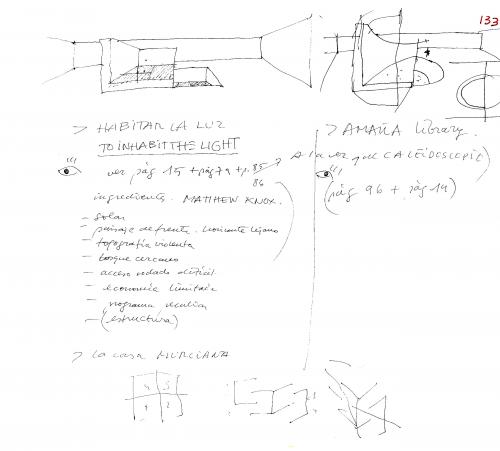 133
> HABITAR LA LUZ
TO INHABIT THE LIGHT
ver pág 15 + pág 79 + p. 85
86
ingredients. MATTHEW KNOX.
- solar
- paisaje de frente. horizonte lejano
- topografía violenta
- bosque cercano
- acceso rodado difícil
- economía limitada
- programa
- (estructura)
> la casa MURCIANA
4 3
1 2
> AMAÑA library.
A la vez que CALEIDOSCOPIE
(pág 96 + pág 19)